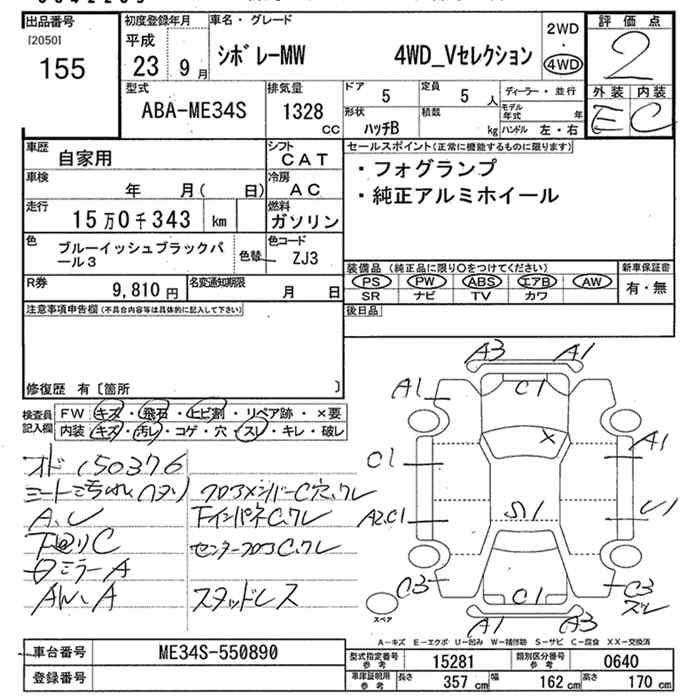 出品番号
[2050]
155
初度登録年月
平成
23 9月
車名・グレード
シボレーMW 4WD_Vセレクション
2WD
・
4WD
評価点
2
外装 内装
E C
型式
ABA-ME34S
排気量
1328
CC
ドア
5
定員
5 人
ディーラー・並行
形状
ハッチB
積載
kg
モデル年式 年
ハンドル 左・右
車歴
自家用
シフト
CAT
車検
年 月( 日)
冷房
AC
走行
15万0千343 km
燃料
ガソリン
色
ブルーイッシュブラックパ
ール3
色替
色コード
ZJ3
R券
9,810 円
名変通知期限
月 日
セールスポイント(正常に機能するものに限ります)
・フォグランプ
・純正アルミホイール
装備品 (純正品に限り○をつけてください)
PS PW ABS エアB AW
SR ナビ TV カワ
新車保証書
有・無
後日品
注意事項申告欄(不具合内容等は具体的に記入して下さい)
修復歴 有〔箇所 〕
検査員
記入欄
FW キズ・飛石・ヒビ割・リペア跡・×要
内装 キズ・汚レ・コゲ・穴・スレ・キレ・破レ
オド150376
シート汚れ、ヘタリ
フロアメンバーC穴、クレ
A、U
下インパネC、クレ
下回りC
センターフロアC、クレ
Dミラー A
AW、A
スタッドレス
A3 A1
A1 C1
C1 × A1
A2、C1 S1 U1
C3 C1 C3
スレ
A1 A3
スペア
A−キズ E−エクボ U−凹み W−補修跡 S−サビ C−腐食 XX−交換済
車台番号 ME34S-550890
登録番号
型式指定番号
参考
15281
類別区分番号
参考
0640
車庫証明用
参考
長さ 357 cm 幅 162 cm 高さ 170 cm